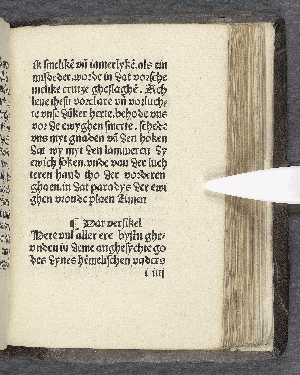 ik smelike vñ iamerlyke, als ein
misdeder, worde in dat vorsche
melike crutze gheslaghē. Ach
leue ihesu vorclare vñ vorluch-
te vnse dūker herte, behode vns
vor de ewyghen smerte, schede
vns myt gnaden vā den boken
dat wy myt den lammeren dy
ewich soken, vnde van der luch
teren hand tho der vorderen
ghaen, in dat paradys der ewi
ghen vronde plaen Amen
¶ Dat versikel
Here vul aller ere bysūn ghe-
vnden in deme anghesychte go
des dynes hēmelischen vaders
i iiij